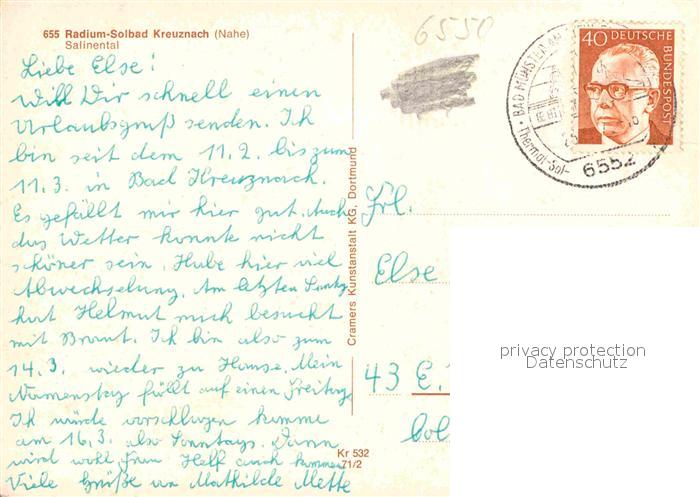 655 Radium-Solbad Kreuznach (Nahe)
Salinental
6550
Liebe Else!
Will Dir schnell einen
Urlaubsgruß senden. Ich
bin seit dem 11.2. bis zum
11.3. in Bad Kreuznach.
Es gefällt mir hier gut. Auch
das Wetter konnte nicht
schöner sein. Habe hier viel
Abwechselung. Am letzten Sonntg.
hat Helmut mich besucht
mit Braut. Ich bin also zum
14.3. wieder zu Hause. Mein
Namenstag fällt auf einen Freitag.
Ich würde vorschlagen komme
am 16.3. also Sonntags. Dann
wird wohl Frau Helf auch kommen
Viele Grüße von Mathilde Mette
Cramers Kunstanstalt KG, Dortmund
Kr 532
71/2
40 DEUTSCHE
BUNDESPOST
BAD MÜNSTER AM
Thermal-Sol-
6552
Frl.
Else
43 E.
privacy protection
Datenschutz